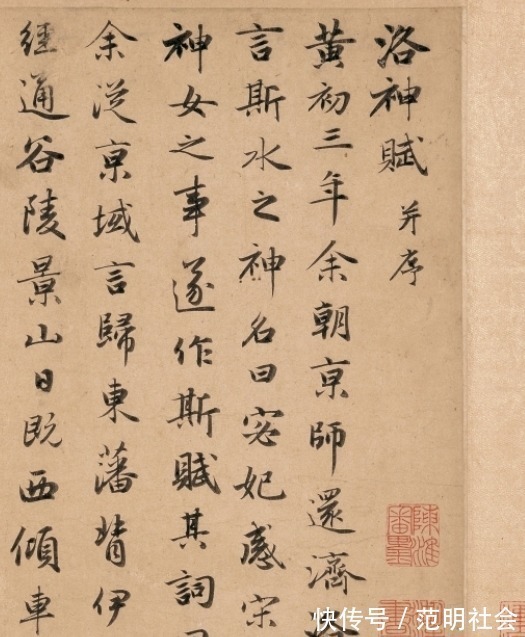 洛神賦 并序
黄初三年余朝京師還濟
言斯水之神名曰宓妃感宋
神女之事遂作斯賦其詞
余從京域言歸東藩背伊
經通谷陵景山日既西傾車
快传号 / 范明社会